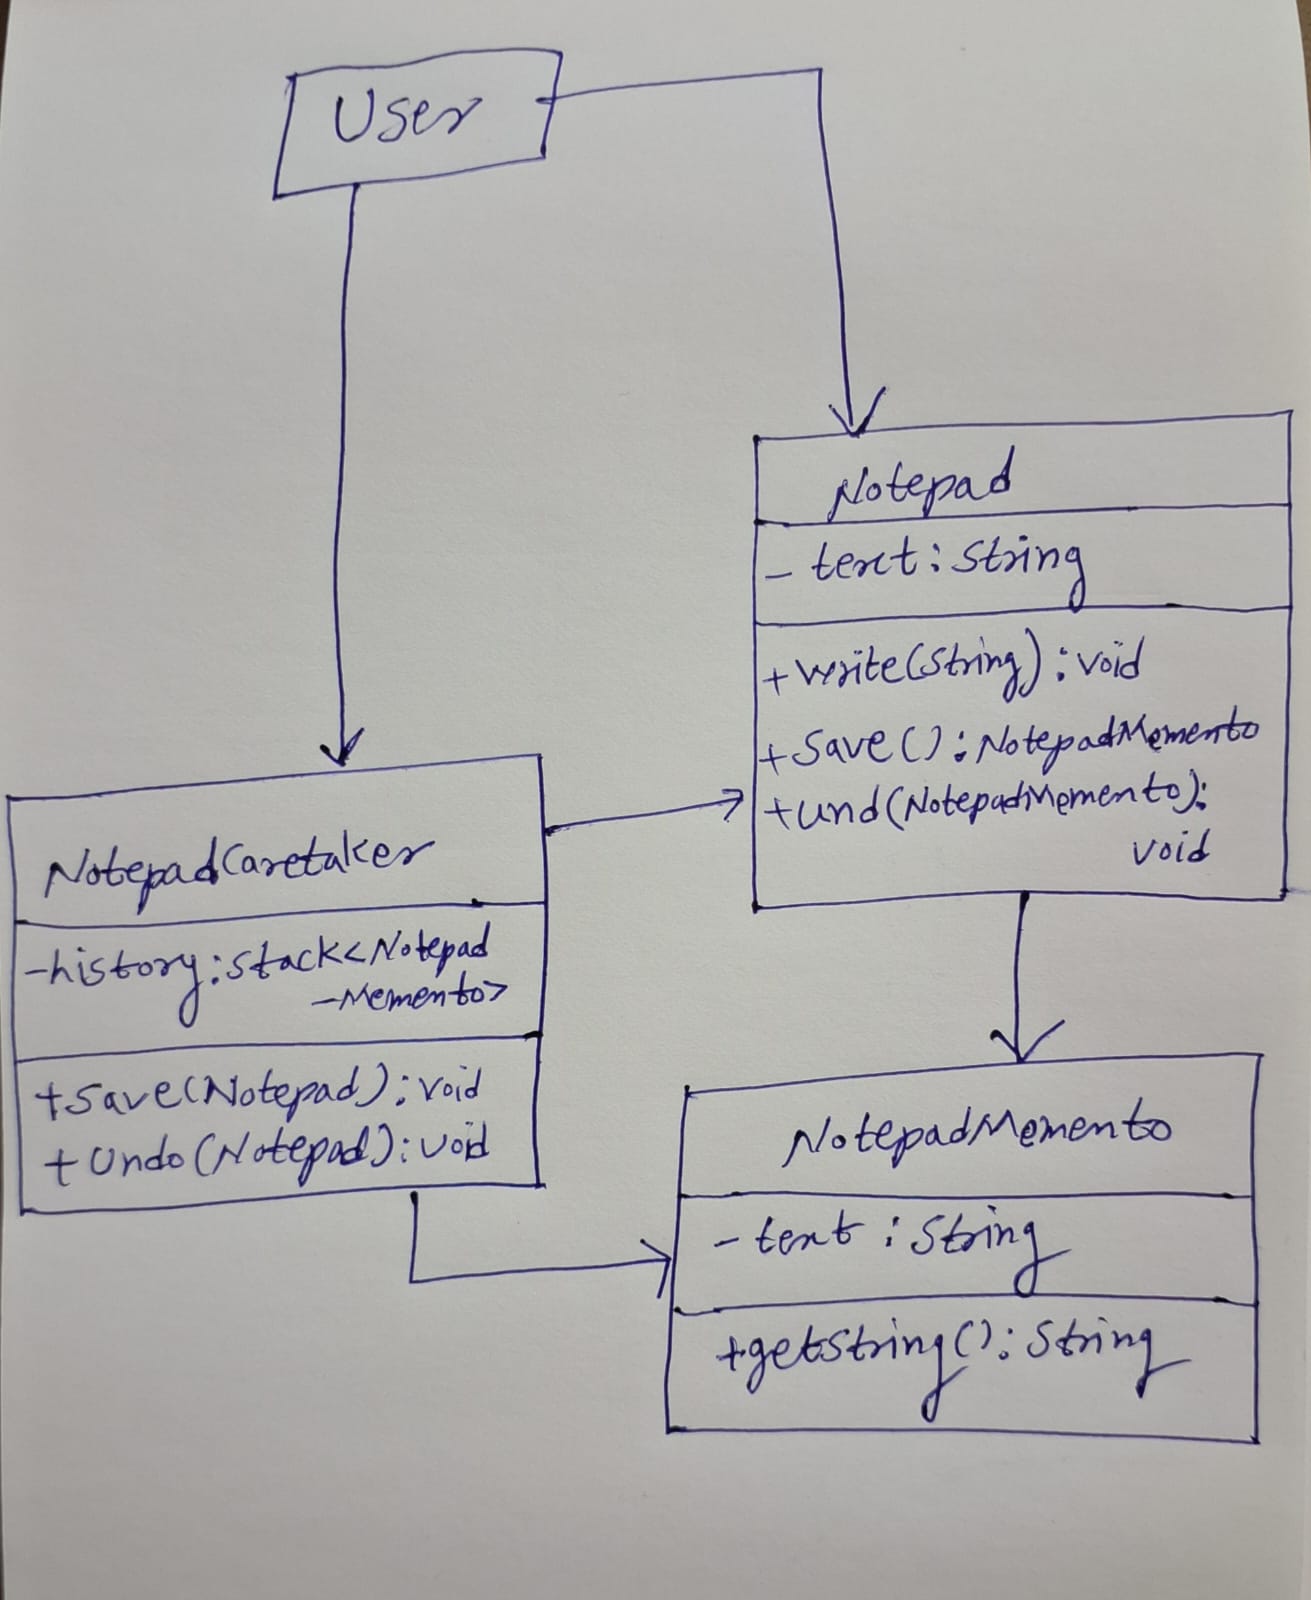 User
Notepad
- text: String
+write(String): void
+Save(): NotepadMemento
+und(NotepadMemento):
void
NotepadCaretaker
-history: stack<Notepad
-Memento>
+Save(Notepad): void
+ Undo(Notepad): void
NotepadMemento
- text: String
+getString(): String